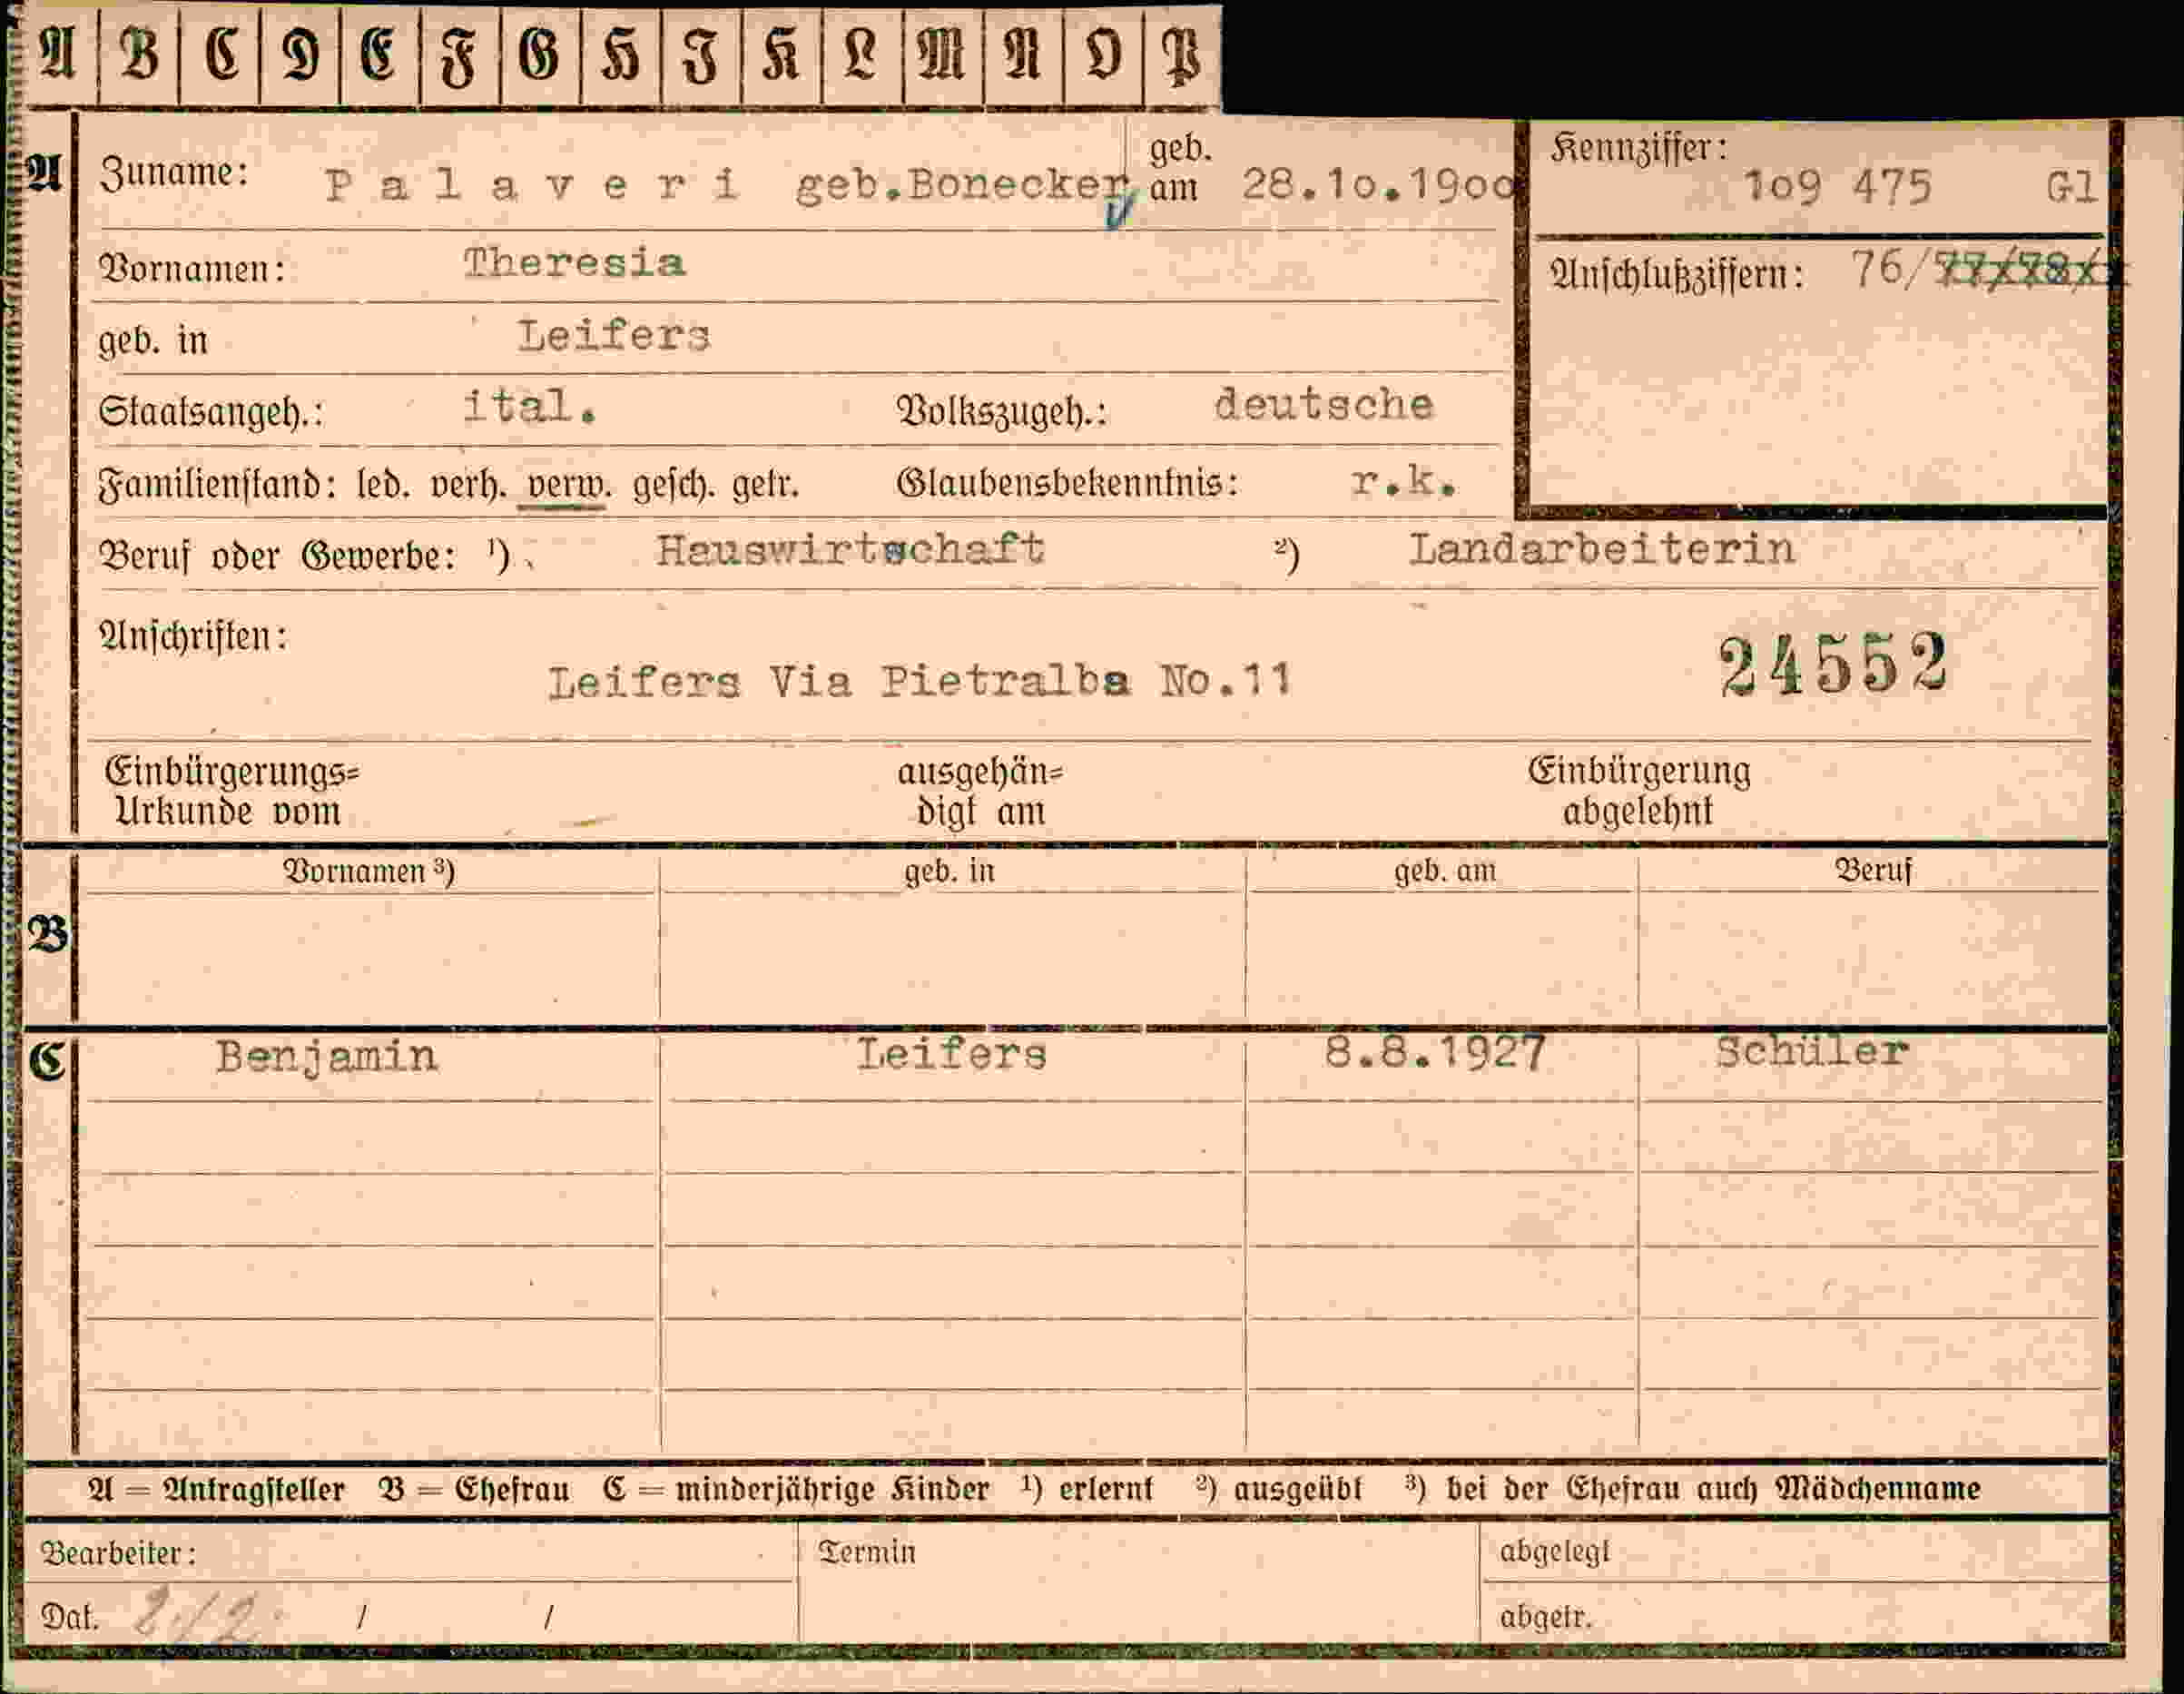 A B C D E F G H I K L M N O P
A Zuname: Palaveri geb.Bonecker geb. am 28.10.1900 Kennziffer: 109 475 Gl
Vornamen: Theresia Anschlußziffern: 76/77/78/
geb. in Leifers
Staatsangeh.: ital. Volkszugeh.: deutsche
Familienstand: led. verh. verw. gesch. getr. Glaubensbekenntnis: r.k.
Beruf oder Gewerbe: ¹) Hauswirtschaft ²) Landarbeiterin
Anschriften:
Leifers Via Pietralba No.11 24552
Einbürgerungs= ausgehän= Einbürgerung
Urkunde vom digt am abgelehnt
Vornamen ³) geb. in geb. am Beruf
B
C Benjamin Leifers 8.8.1927 Schüler
A = Antragsteller B = Ehefrau C = minderjährige Kinder ¹) erlernt ²) ausgeübt ³) bei der Ehefrau auch Mädchenname
Bearbeiter: Termin abgelegt
Dat. / / abgetr.